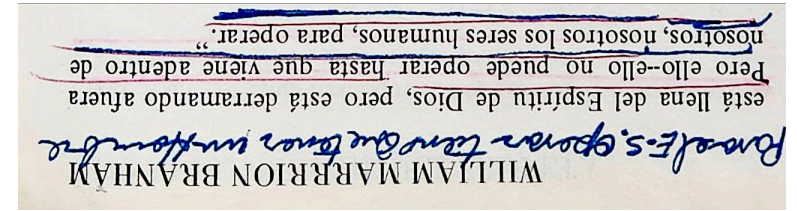 WILLIAM MARRRION BRANHAM
Para el E.S. Operar tiene que tomar un Hombre
está llena del Espíritu de Dios, pero está derramando afuera
Pero ello--ello no puede operar hasta que viene adentro de
nosotros, nosotros los seres humanos, para operar.”